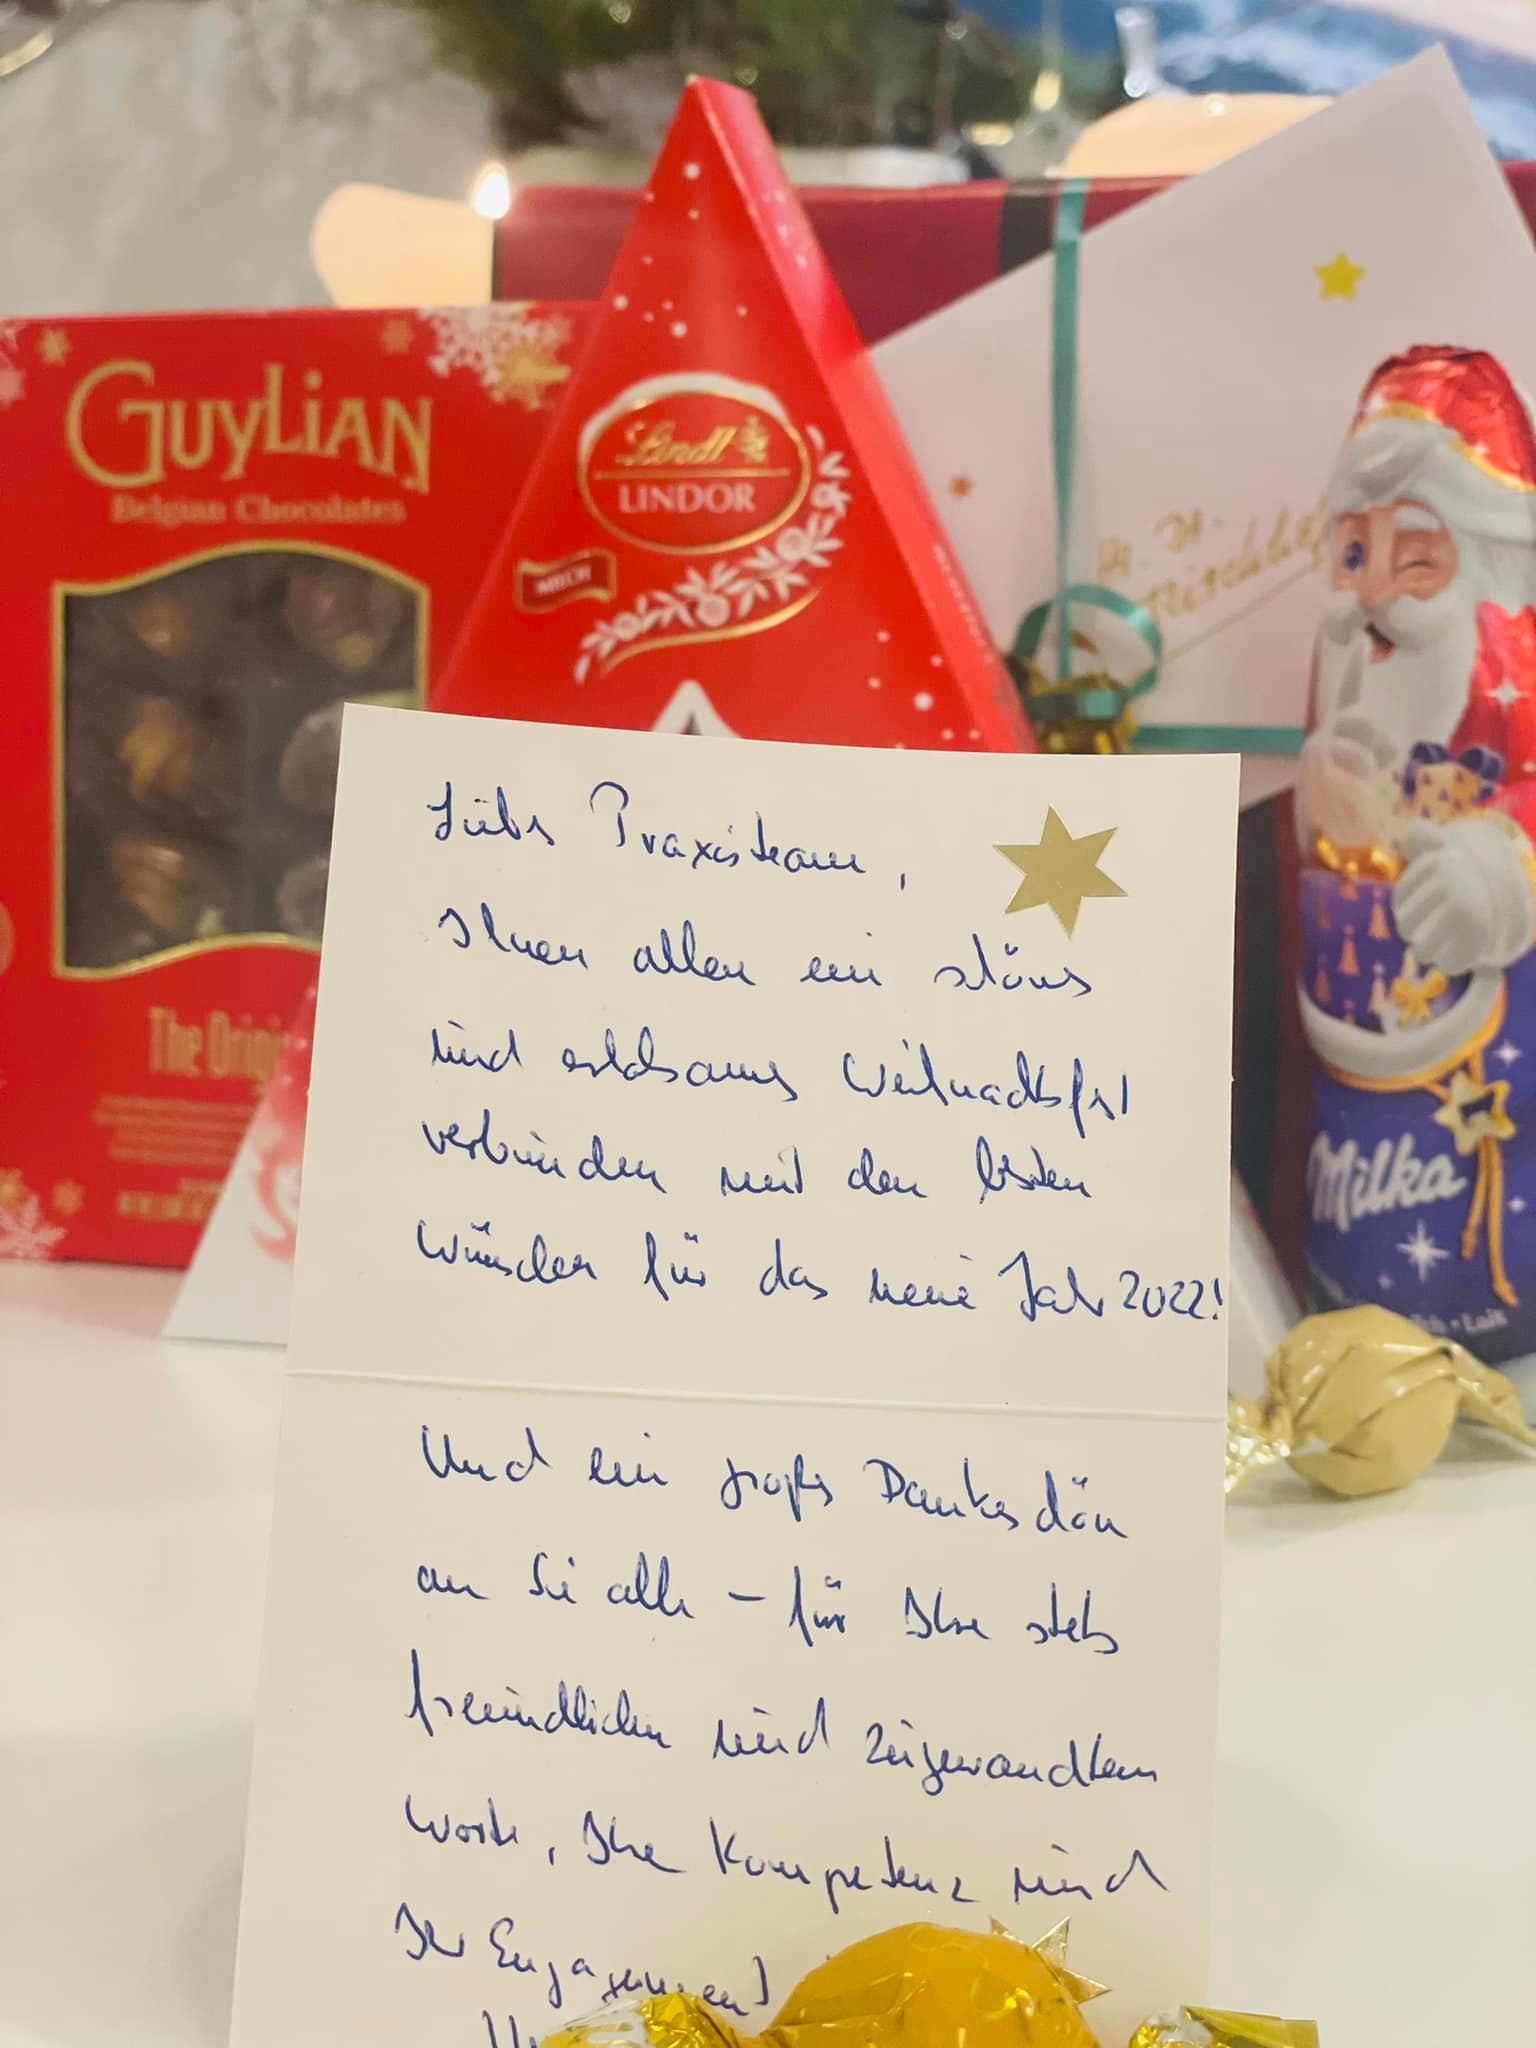 GUYLiAN
Belgian Chocolates
The Origi
Lindt
LINDOR
MILCH
Milka
Liebes Praxisteam,
Ihnen allen ein schönes
und erholsames Weihnachtsfest
verbunden mit den besten
Wünschen für das neue Jahr 2022!
Und ein großes Dankeschön
an Sie alle – für Ihre stets
freundlichen und zugewandten
Worte, Ihre Kompetenz und
Ihr Engagement